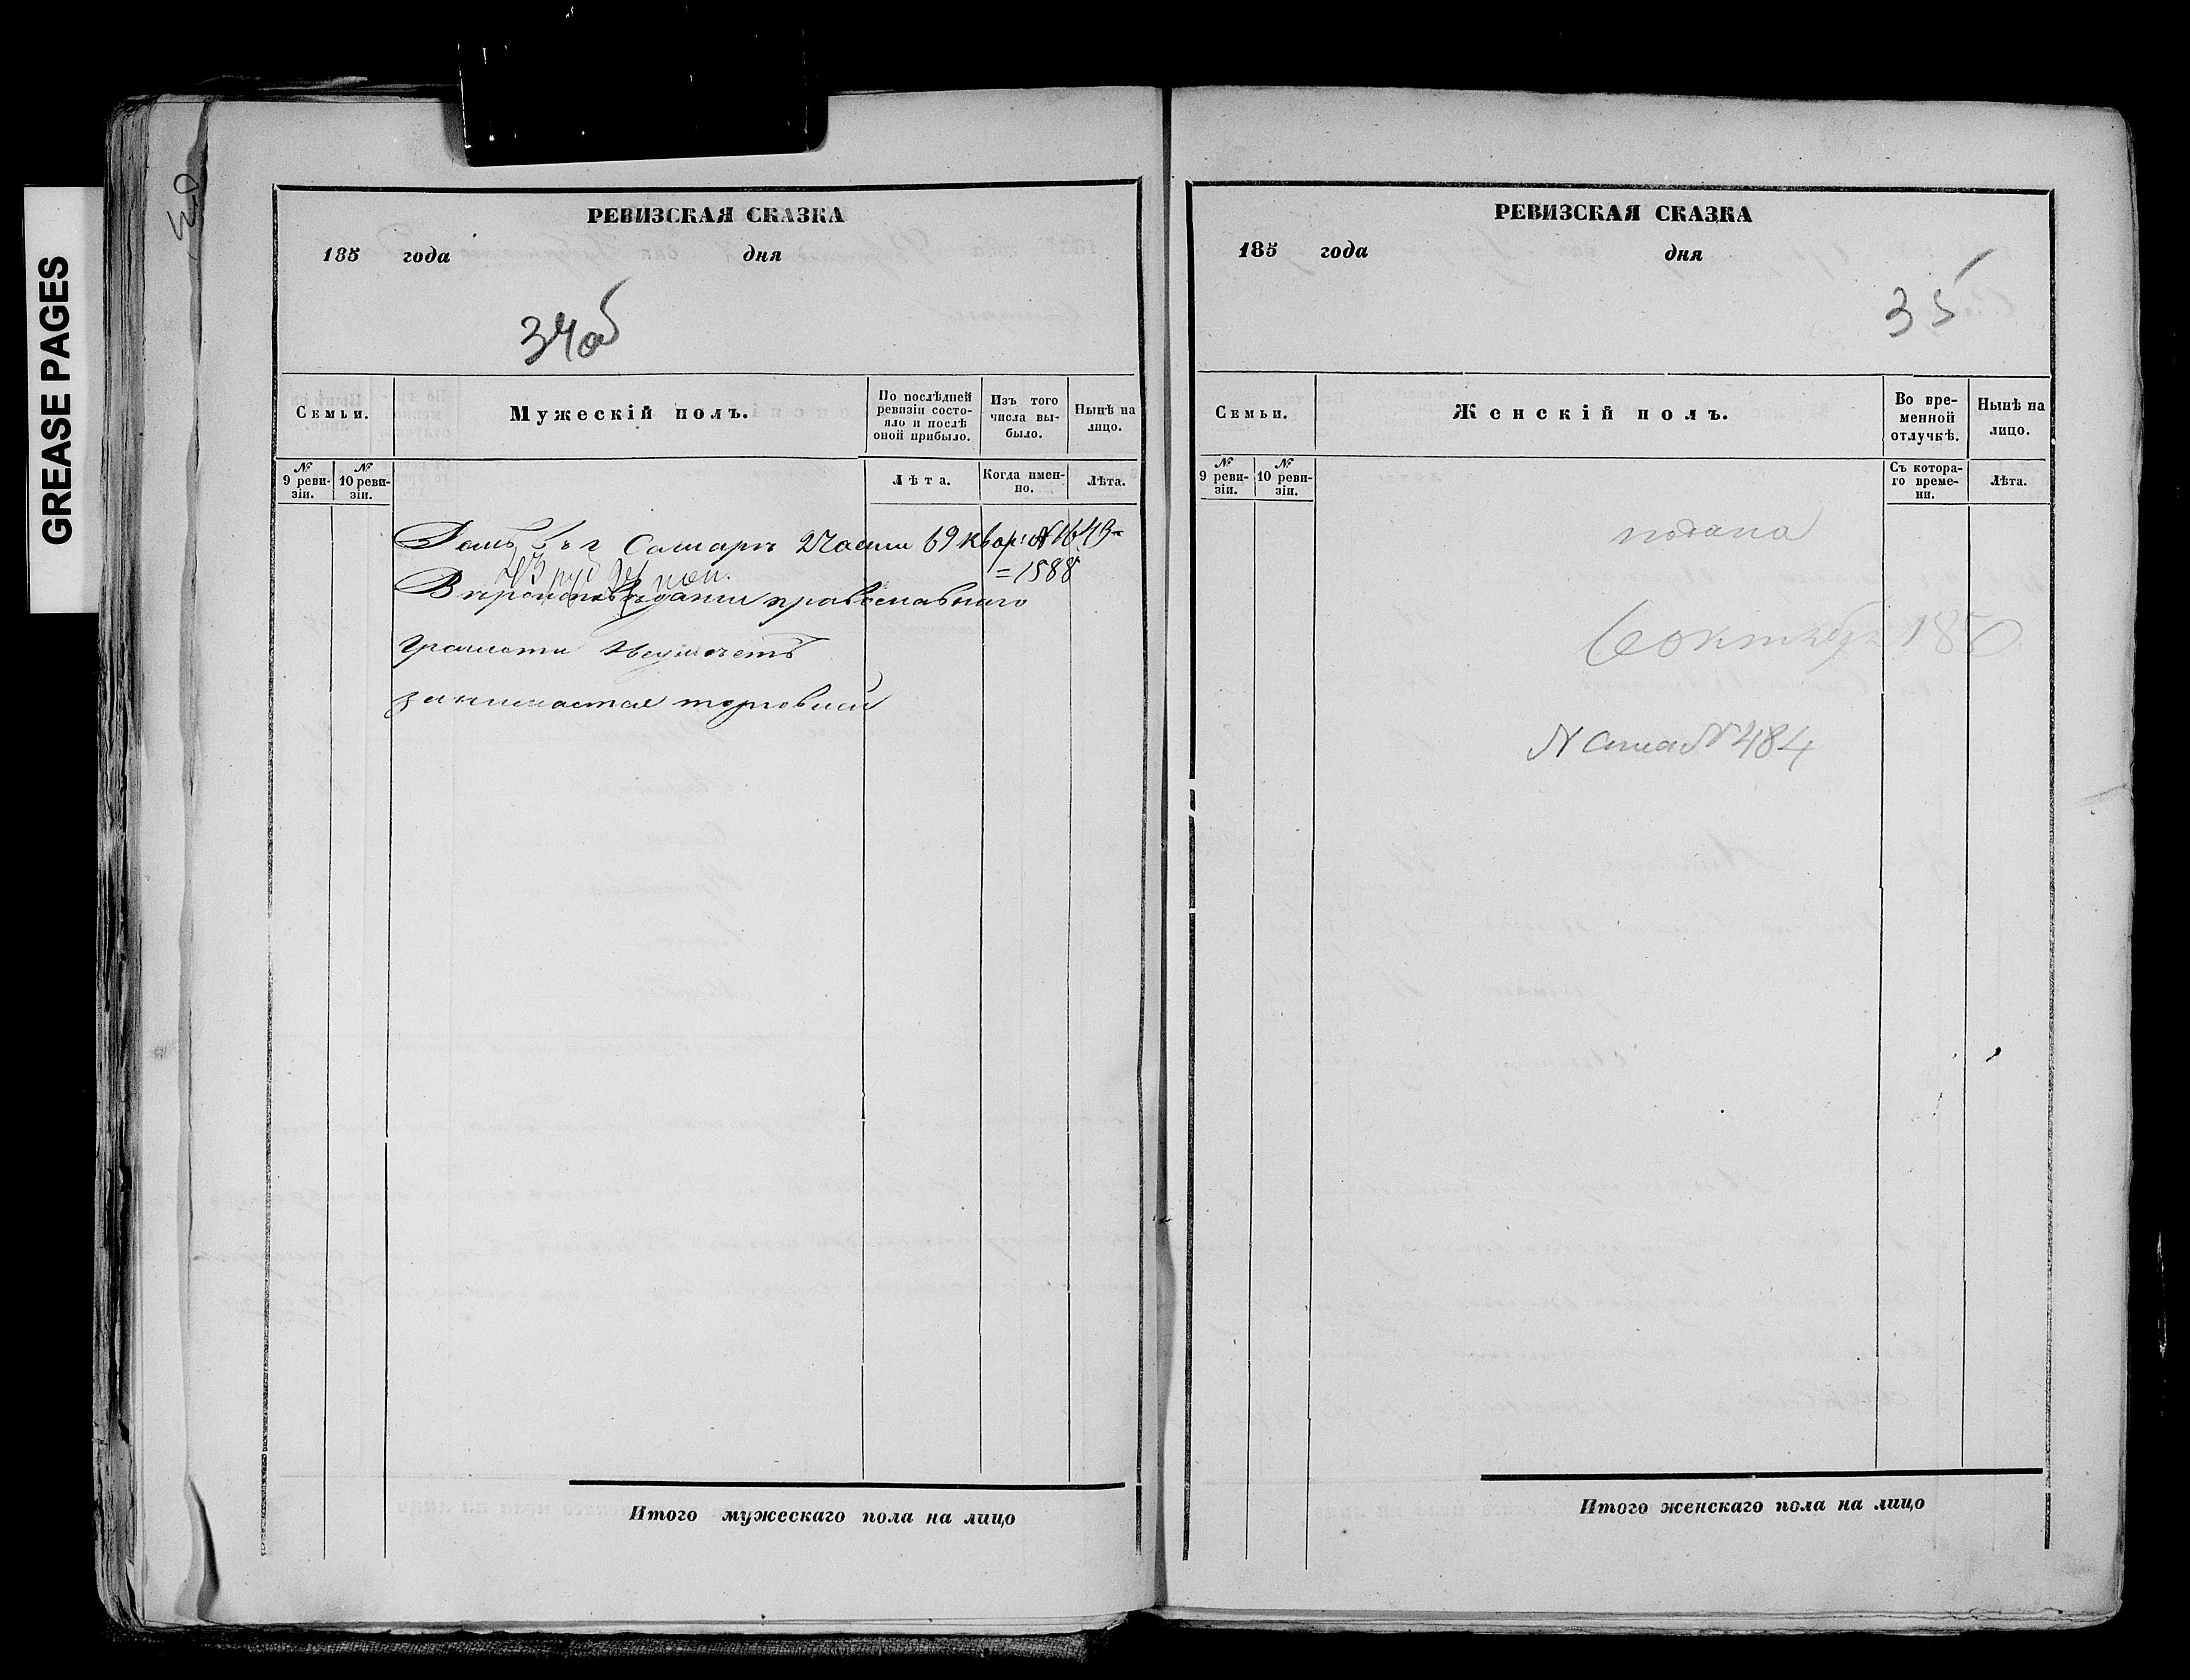 GREASE PAGES
РЕВИЗСКАЯ СКАЗКА
185 года дня
34об
Семьи.
Мужескій полъ.
По послѣдней ревизіи состояло и послѣ оной прибыло.
Изъ того числа выбыло.
Нынѣ на лицо.
№ 9 ревизіи.
№ 10 ревизіи.
Лѣта.
Когда именно.
Лѣта.
Домъ въ г Самаре 2 части 69 квар: № 1643=
=1588
43 руб 91 коп.
Вероисповедания православнаго
грамоти неумеетъ
занимается торговлей
Итого мужескаго пола на лицо
РЕВИЗСКАЯ СКАЗКА
185 года дня
35
Семьи.
Женскій полъ.
Во временной отлучкѣ.
Нынѣ на лицо.
№ 9 ревизіи.
№ 10 ревизіи.
Съ котораго времени.
Лѣта.
подана
6 октября 185
№ 484
Итого женскаго пола на лицо